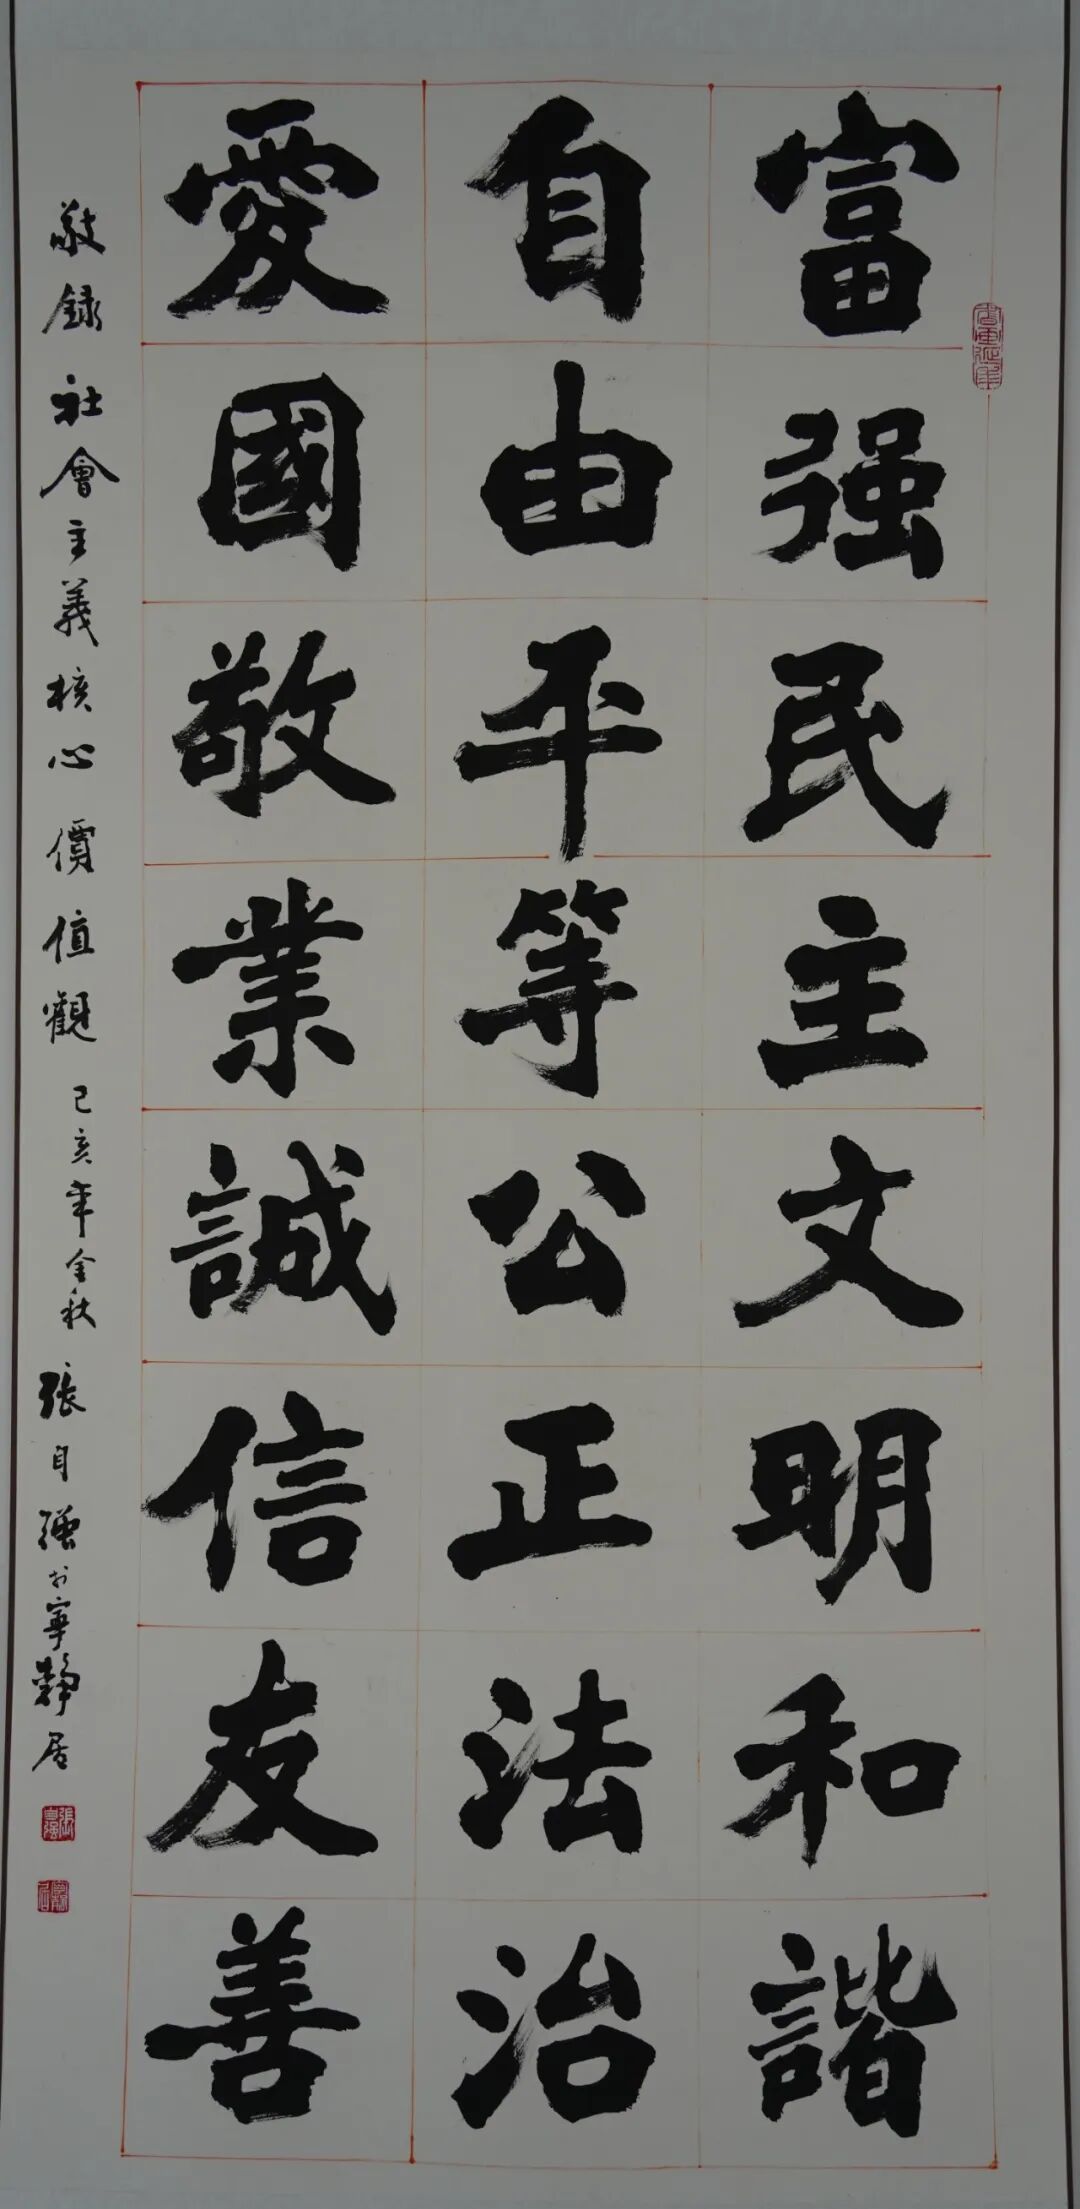 富强民主文明和諧
自由平等公正法治
愛國敬業誠信友善
敬録社會主義核心價值觀 己亥年金秋 張自强於寧靜居
張自强